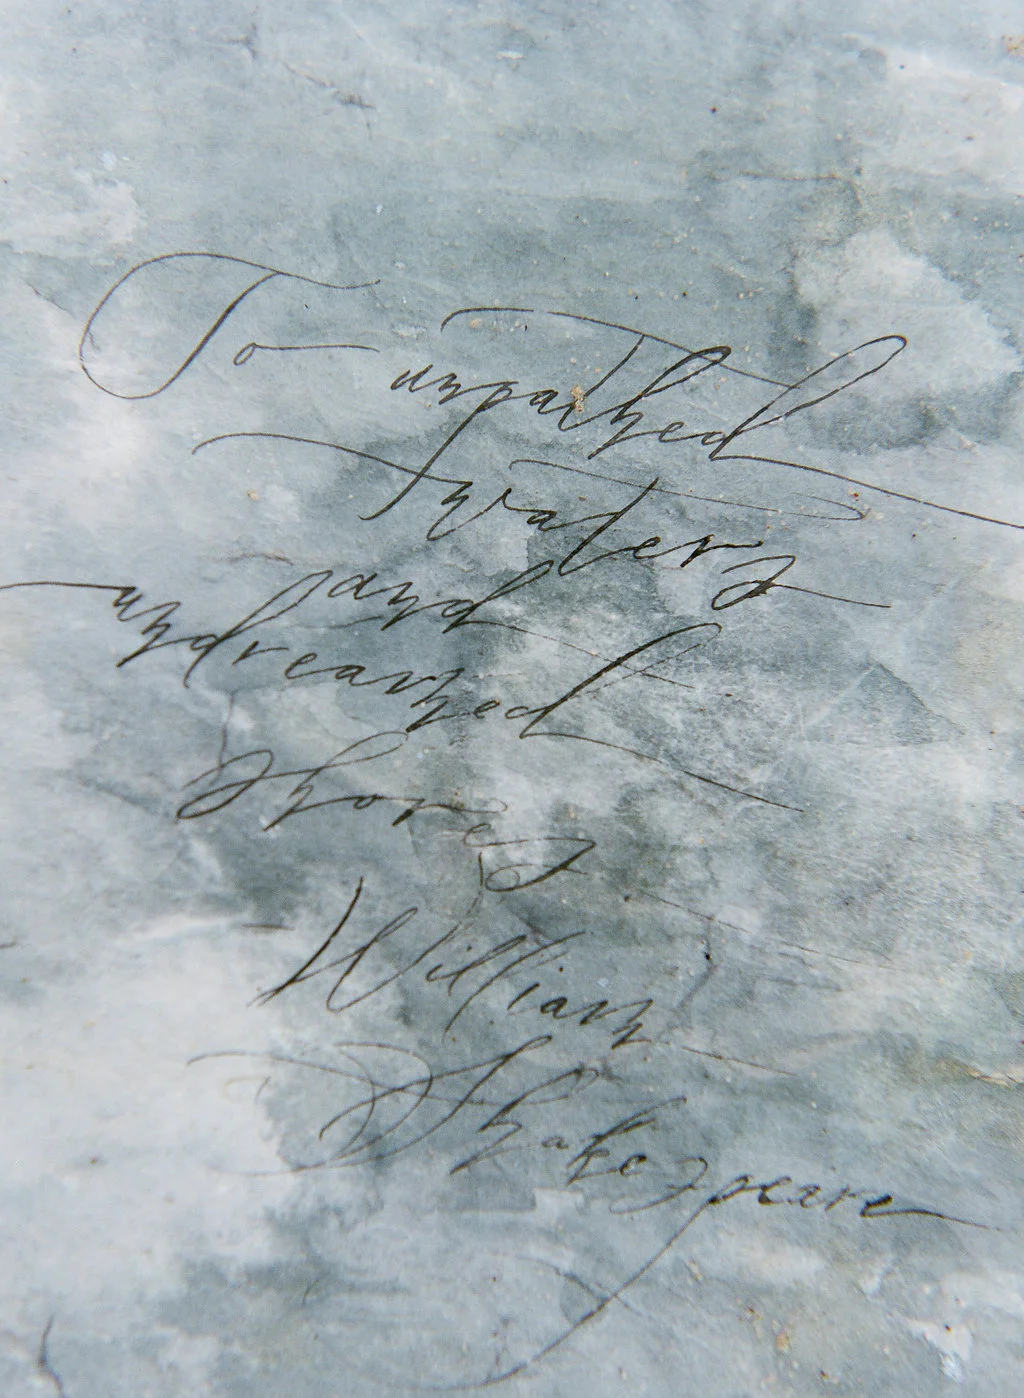 To unpathed
waters
and
undreamed
shores
William
Shakespeare